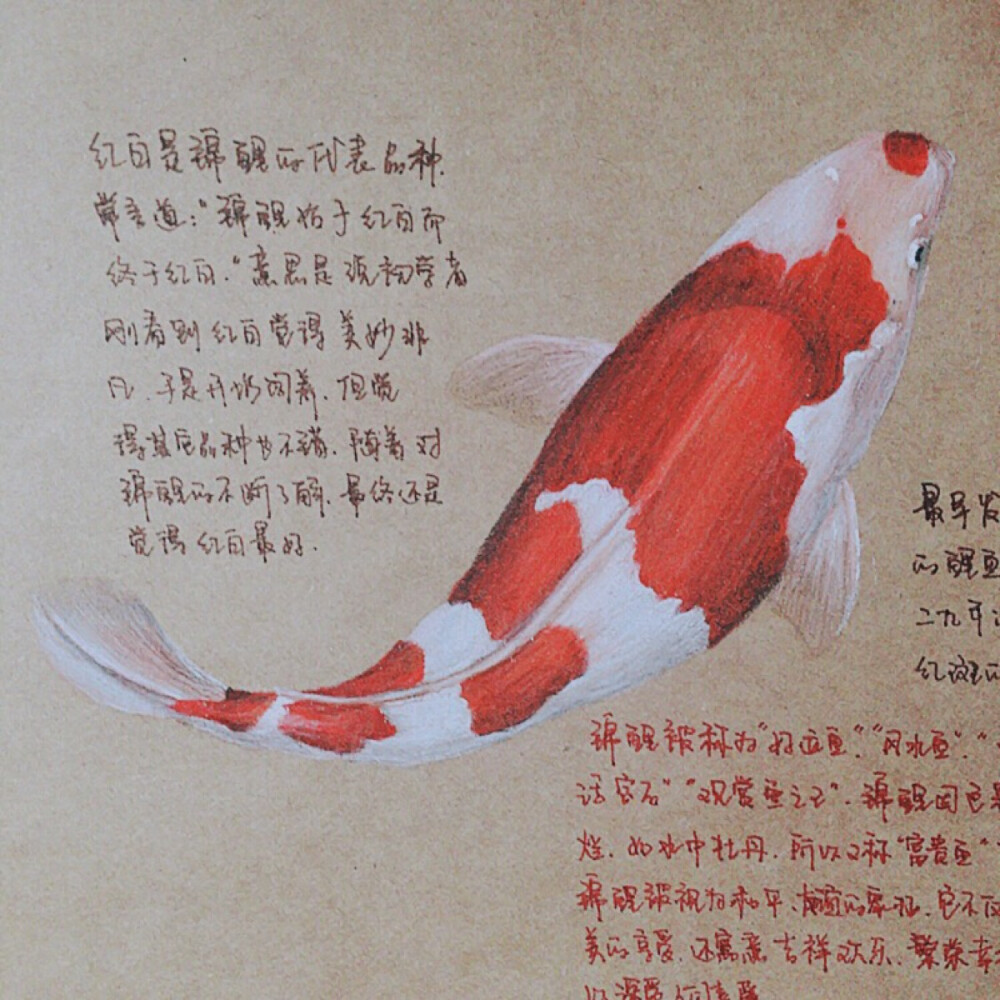 红白是锦鲤的代表品种.
常言道:"锦鲤始于红白而
终于红白."意思是说初学者
刚看到红白觉得美妙非
凡.于是开始饲养.但觉
得其它品种也不错.随着对
锦鲤的不断了解.最终还是
觉得红白最好.
最早发
的鲤鱼
二九年
红斑的
锦鲤被称为"好运鱼"."风水鱼"."
活宝石""观赏鱼之王".锦鲤因色
烂.如水中牡丹.所以又称"富贵鱼"
锦鲤被视为和平、的象征.它不仅
美的享受.还寓意吉祥欢乐、繁荣幸
以深受